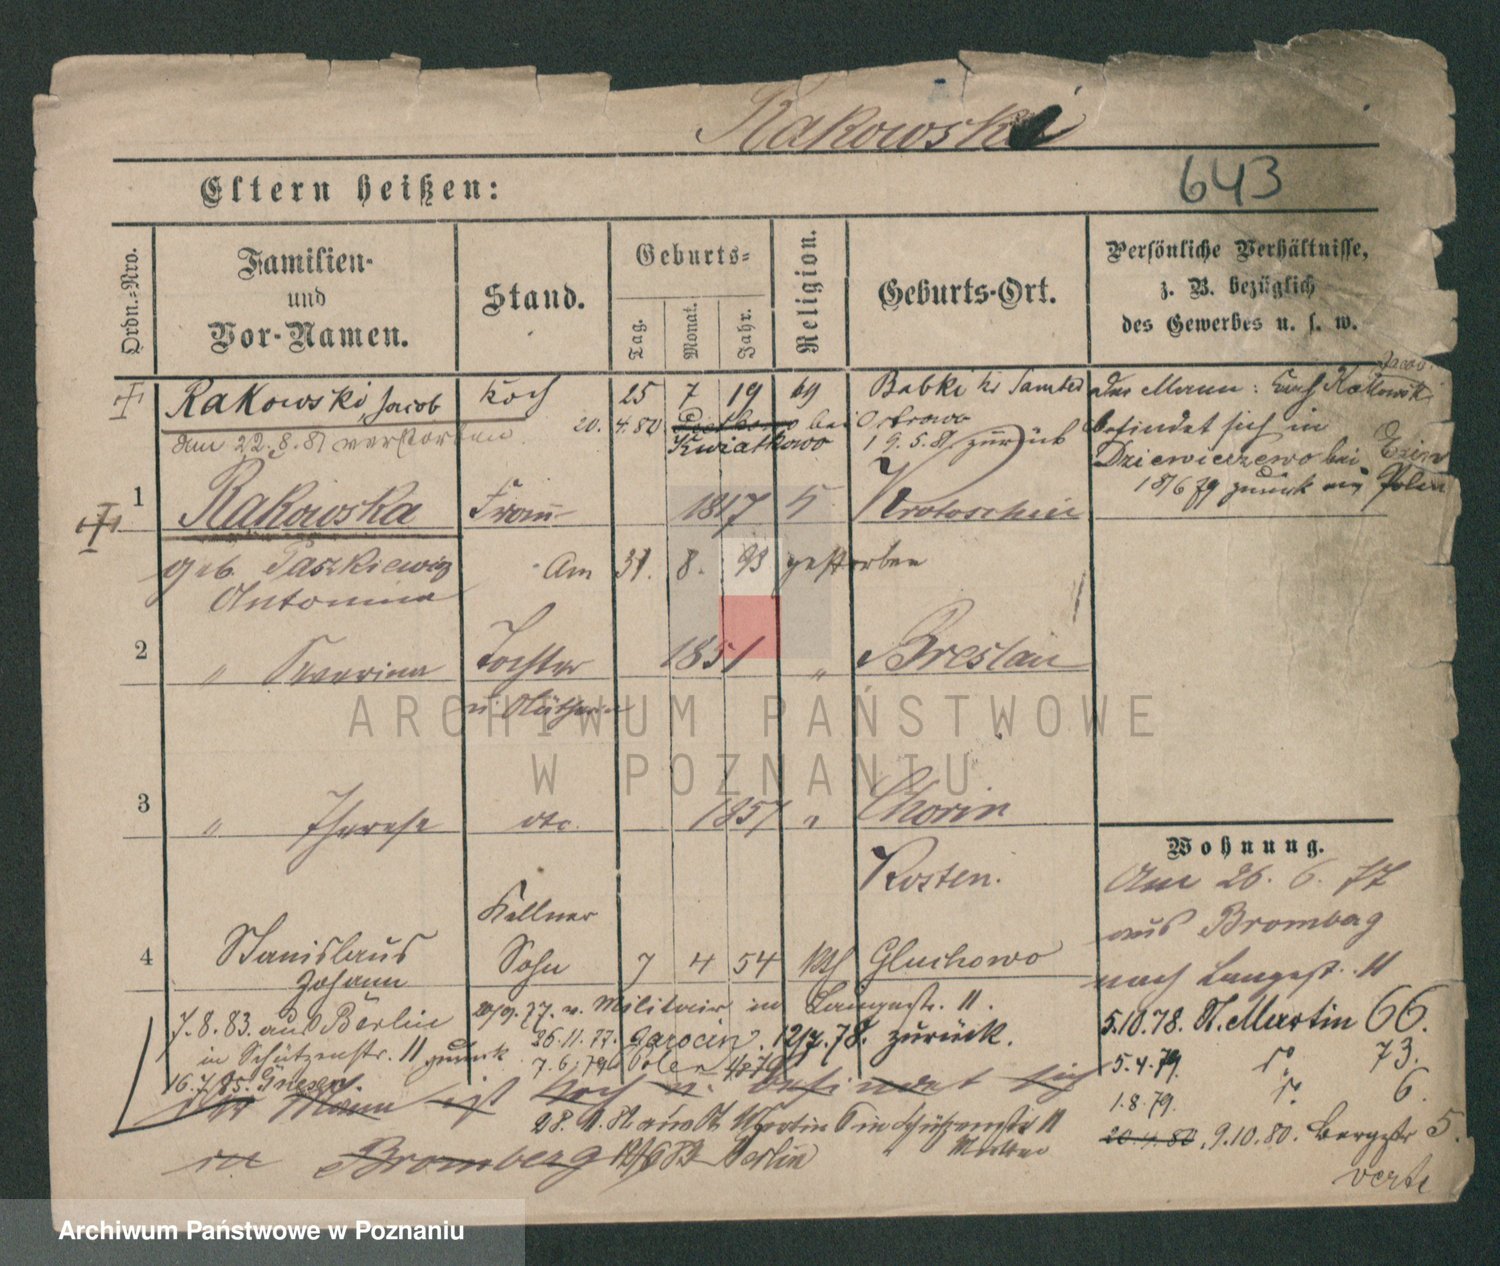 Rakowski
643
Eltern heißen:
Ordn.-Nro.
Familien- und Vor-Namen.
Stand.
Geburts-
Tag.
Monat.
Jahr.
Religion.
Geburts-Ort.
Persönliche Verhältnisse, z. B. bezüglich des Gewerbes u. s. w.
Rakowski, Jacob Koch 25 7 19 Babki
Jacob
das Mann: Rakowski
befindet sich in
Dziewierzewo bei Exin
18/6 79 zurück aus Polen
am 22.8.8 verstorben
20. 4.80 bei Ostrowo
Kwiatkowo 19.5.81 zurück
1 Rakowska Frau 1817 Krotoschin
geb. Paszkiewicz Am 31. 8. 93 gestorben
Antonina
2 " Severina Tochter 1851 " Breslau
3 " Therese do. 1857 " Chorin
Kosten.
Wohnung.
Am 26. 6. 77
aus Bromberg
nach Langestr. 11
Kellner
4 Stanislaus Sohn 7 4 54 kth Gluchowo
Johann
7.8.83. aus Berlin
in Schützenstr. 11 zurück
16.7.85. Gnesen.
20/9. 77. z. Militair in Langestr. 11.
26.11.77. Jarocin. 12/7.78. zurück.
7.6.79 Polen
5.10.78. St. Martin 66.
5.4.79. do 73.
1.8.79. do 6.
20.4.80, 9.10.80. Bergstr 5.
verte
Der Mann ist Koch u. befindet sich
in Bromberg
Martin 6 in Schützenstr 11
Berlin
ARCHIWUM PAŃSTWOWE
W POZNANIU
Archiwum Państwowe w Poznaniu